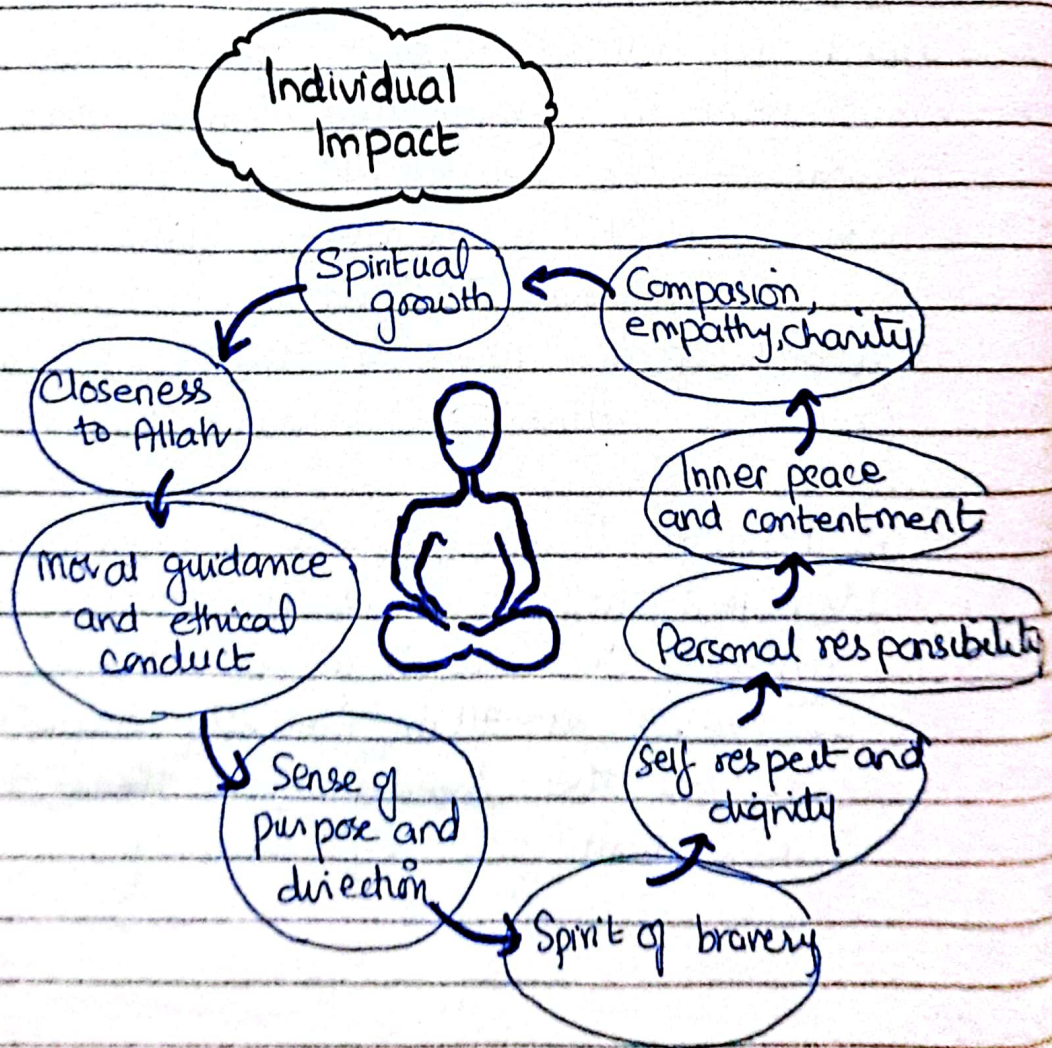 Individual
Impact
Spiritual
growth
Closeness
to Allah
Moral guidance
and ethical
conduct
Sense of
purpose and
direction
Spirit of bravery
Self respect and
dignity
Personal responsibility
Inner peace
and contentment
Compasion,
empathy, charity